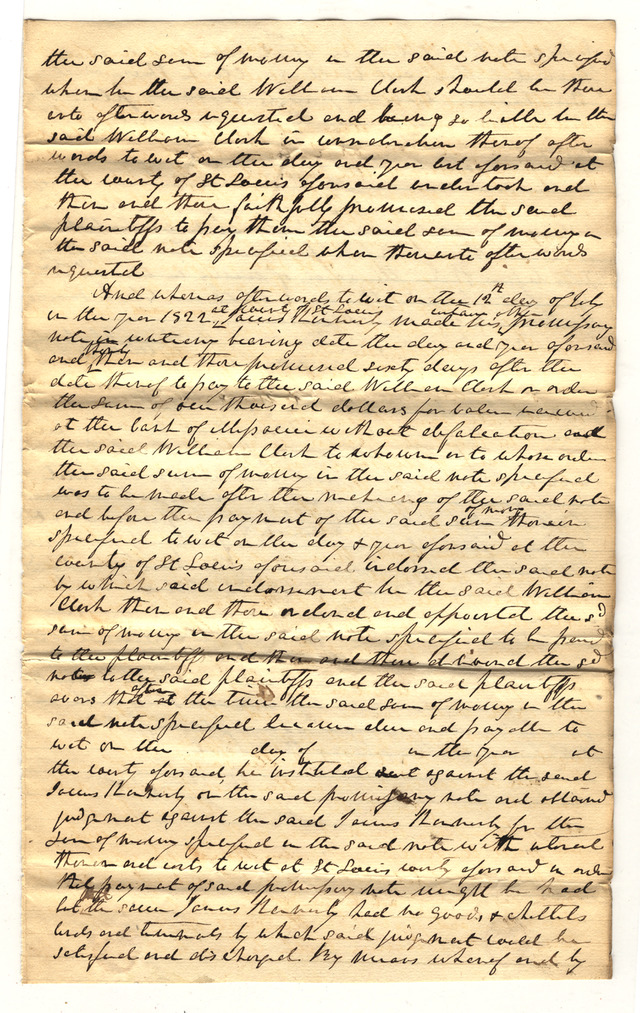 the said sum of money in the said note specified
when he the said William Clark should be there
unto afterwards requested and being so liable he the
said William Clark in consideration thereof after
words to wit on the day and year last aforsaid at
the county of St Louis aforsaid undertook and
then and there faithfully promised the said
plaintiffs to pay them the said sum of money in
the said note specified when thereunto afterwards
requested
And whereas afterwards to wit on the 12th day of July
in the year 1822 at county of St Louis James Kennerly made his promissory
note in writing bearing date the day and year aforsaid
and then and there promised sixty days after the
date thereof to pay to the said William Clark or order
the sum of one thousand dollars for value received
at the bank of Missouri without defalcation and
the said William Clark to whom or to whose order
the said sum of money in the said note specified
was to be made after the making of the said note
and before the payment of the said sum of money therein
specified to wit on the day & year aforsaid at the
county of St Louis aforsaid indorsed the said note
by which said indorsement he the said William
Clark then and there ordered and appointed the sd
sum of money in the said note specified to be paid
to the plaintiffs and then and there delivered the sd
note to the said plaintiffs and the said plaintiffs
avers that after the time the said sum of money in the
said note specified became due and payable to
wit on the day of in the year at
the county aforsaid, he instituted suit against the said
James Kennerly on the said promissory note and obtained
judgment against the said James Kennerly for the
sum of money specified in the said note with interest
thereon and costs to wit at St Louis county aforsaid in order
that payment of said promissory note might be had
but the same James Kennerly had no goods & chattels
lands and tenements by which said judgment could be
satisfied and discharged. By means whereof and by